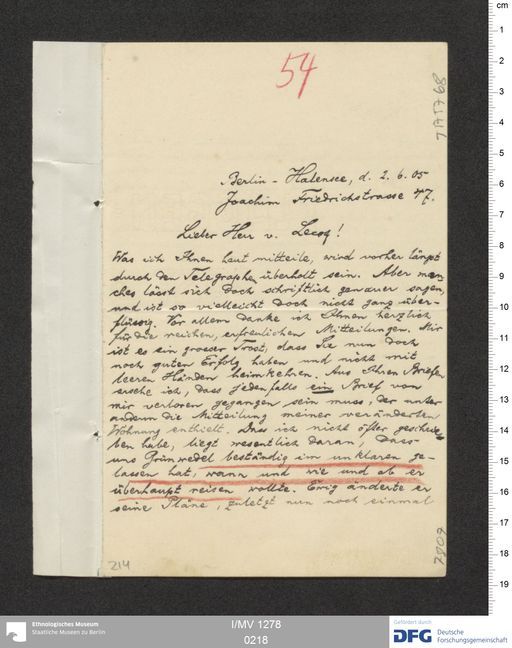 54
Berlin - Halensee, d. 2. 6. 05
Joachim Friedrichstrasse 47.
Lieber Herr v. Lecoq!
Was ich Ihnen heut mitteile, wird vorher längst
durch den Telegraphen überholt sein. Aber man-
ches lässt sich doch schriftlich genauer sagen,
und ist so vielleicht doch nicht ganz über-
flüssig. Vor allem danke ich Ihnen herzlich
für die reichen, erfreulichen Mitteilungen. Mir
ist es ein grosser Trost, dass Sie nun doch
noch guten Erfolg haben und nicht mit
leeren Händen heimkehren. Aus Ihren Briefen
ersehe ich, dass jedenfalls ein Brief von
mir verloren gegangen sein muss, der unter
anderm die Mitteilung meiner veränderten
Wohnung enthielt. Dass ich nicht öfter geschrie-
ben habe, liegt wesentlich daran, dass
uns Grünwedel beständig im unklaren ge-
lassen hat, wann und wie und ob er
überhaupt reisen wollte. Ewig änderte er
seine Pläne, zuletzt nun noch einmal
214
Ethnologisches Museum
Staatliche Museen zu Berlin
I/MV 1278
0218
Gefördert durch
DFG
Deutsche
Forschungsgemeinschaft
cm
1
2
3
4
5
6
7
8
9
10
11
12
13
14
15
16
17
18
19